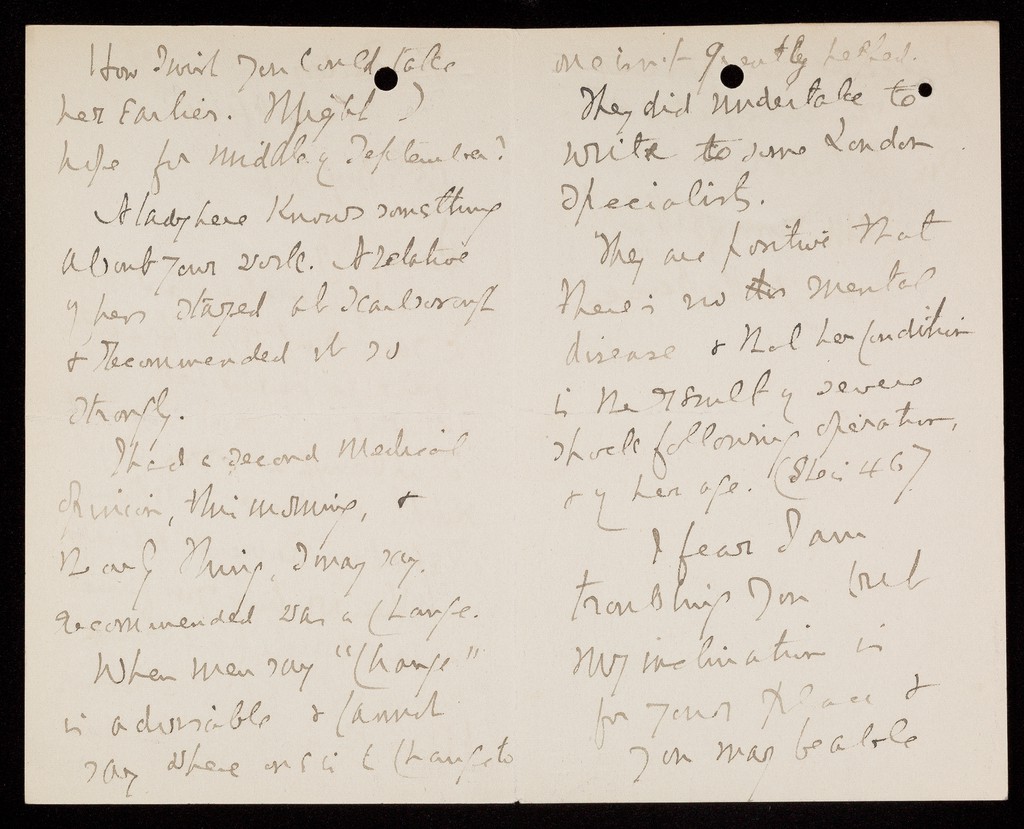 How I wish you could take
her earlier. Might I
hope for middle of September?
A lady here knows something
about your work. A relative
of hers stayed at Scarborough
& recommended it so
strongly.
I had a second medical
opinion, this morning, &
the only thing, I may say,
recommended was a change.
When men say "change"
is advisable & cannot
say where one is to change to
one isn't greatly helped.
They did undertake to
write to some London
specialists.
They are positive that
there is no mental
disease & that her condition
is the result of severe
shock following operation,
& of her age. (She is 46)
I fear I am
troubling you but
my inclination is
for your place &
you may be able